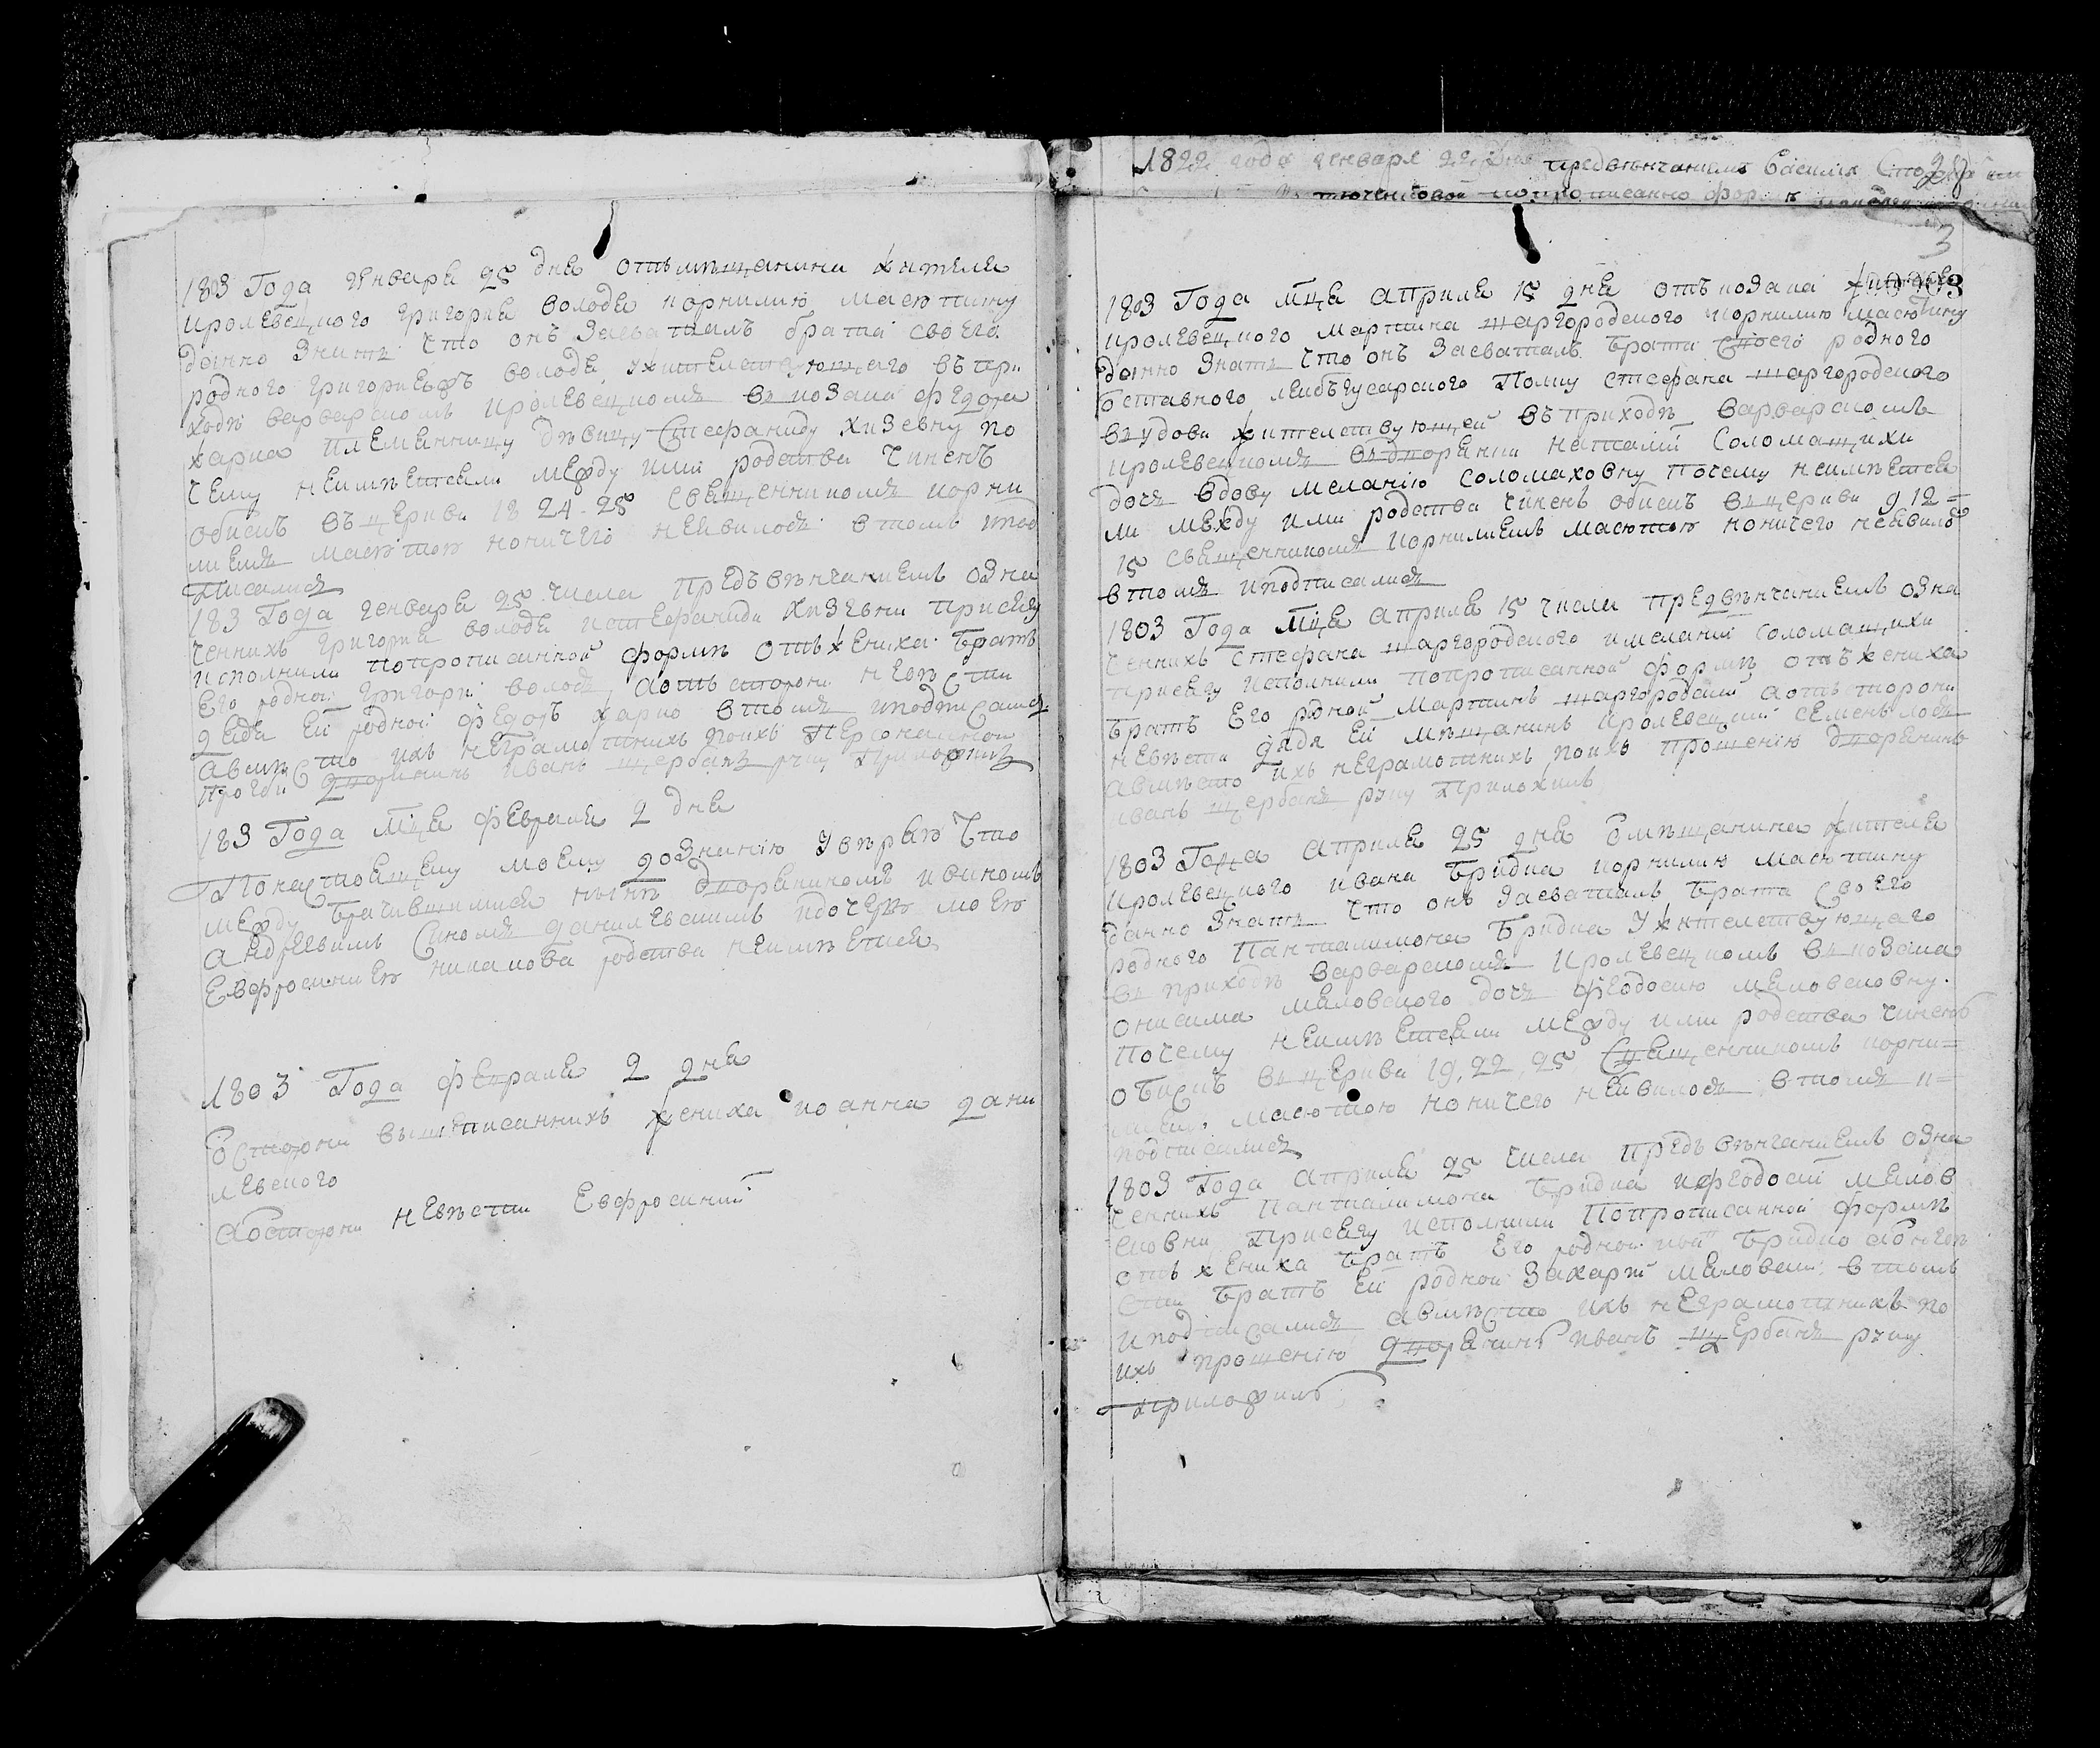 183 Года генваря 25 дня отъ мѣщанина жителя
кролевецкого григория володи корнилию масютину
данно знать что онъ засваталъ брата своего
родного григориевъ володи ужительствующаго въ при
ходѣ варварскомъ кролевецкомъ въ козака федора
харка племянницу дѣвицу Стефаниду хизевну по
чему неимѣетсяли между ими родства Чиненъ
обискъ въ церкви 18 24 25 священникомъ корни
лиемъ масютою но ничего неявилось в томъ и под
писались
183 Года генваря 25 числа предъ вѣнчаниемъ озна
ченнихъ григория володи и стефаниди хизевни присягу
исполнили попрописанной формѣ отъ жениха братъ
его родной григорий володя, а отъ стороны невѣсти
дядя ей родной федоръ харко в томъ и подписались
а вмѣсто ихъ неграмотнихъ по ихъ персоналной
прозби дворянинъ иванъ щербакъ руку приложилъ
183 Года мца февраля 2 дня
По настоящему моему дознанию увѣряю что
между брачившимися нынѣ дворяниномъ иваномъ
андреевимъ Синомъ данилевскимъ и дочерю моею
Евфросиниею никакова родства неимѣется
1803 Года февраля 2 дня
о стороны вышеписаннихъ жениха иоанна дани
левского
а о стороны невѣсти Евфросинии
1822 года генваря 22 дня предвѣнчаниемъ василия
попрописанно
3
1803 Года мца априля 15 дня отъ козака жителя
кролевецкого мартина шаргородского корнилию масютину
данно знать что онъ засваталъ брата своего родного
оставного лейбъгусарского полку стефана шаргородского
въ удови жителствующей въ приходѣ варварскомъ
кролевецкомъ въ дворянки наталии Соломащихи
дочь вдову меланию соломаховну почему неимѣется
ли между ими родства чиненъ обискъ въ церкви 9 12=
15 священникомъ корнилиемъ масютою но ничего неявило
в томъ и подписались
1803 Года мца априля 15 числа предвѣнчаниемъ озна
ченнихъ Стефана шаргородского и мелании соломащихи
присягу исполнили попрописанной формѣ отъ жениха
братъ его родной мартинъ шаргородский а отъ сторони
невѣсти дядя ей мѣщанинъ кролевецкий семенъ
а вмѣсто ихъ неграмотнихъ по ихъ прошению дворянинъ
иванъ щербакъ руку приложилъ
1803 Года априля 25 дня о мѣщанина жителя
кролевецкого ивана бридка корнилию масютину
данно знать что онъ засваталъ брата своего
родного Панталимона бридка ужителствующаго
въ приходѣ варварскомъ кролевецкомъ въ козака
онисима маловского дочь феодосию маловсковну.
почему неимѣетсяли между ими родства чиненъ
обискъ въ церкви 19, 22, 25 Священникомъ корни=
лиемъ масютою но ничего неявилось в томъ и=
подписались
1803 Года априля 25 числа предъ вѣнчаниемъ озна
ченнихъ панталимона бридка и феодосии малов
сковни присягу исполнили попрописанной формѣ
отъ жениха братъ его родной бридко а о невѣ
сти братъ ей родной захарий маловский в томъ
и подписались а вмѣсто ихъ неграмотнихъ по
ихъ прошению дворянинъ иванъ щербакъ руку
приложилъ